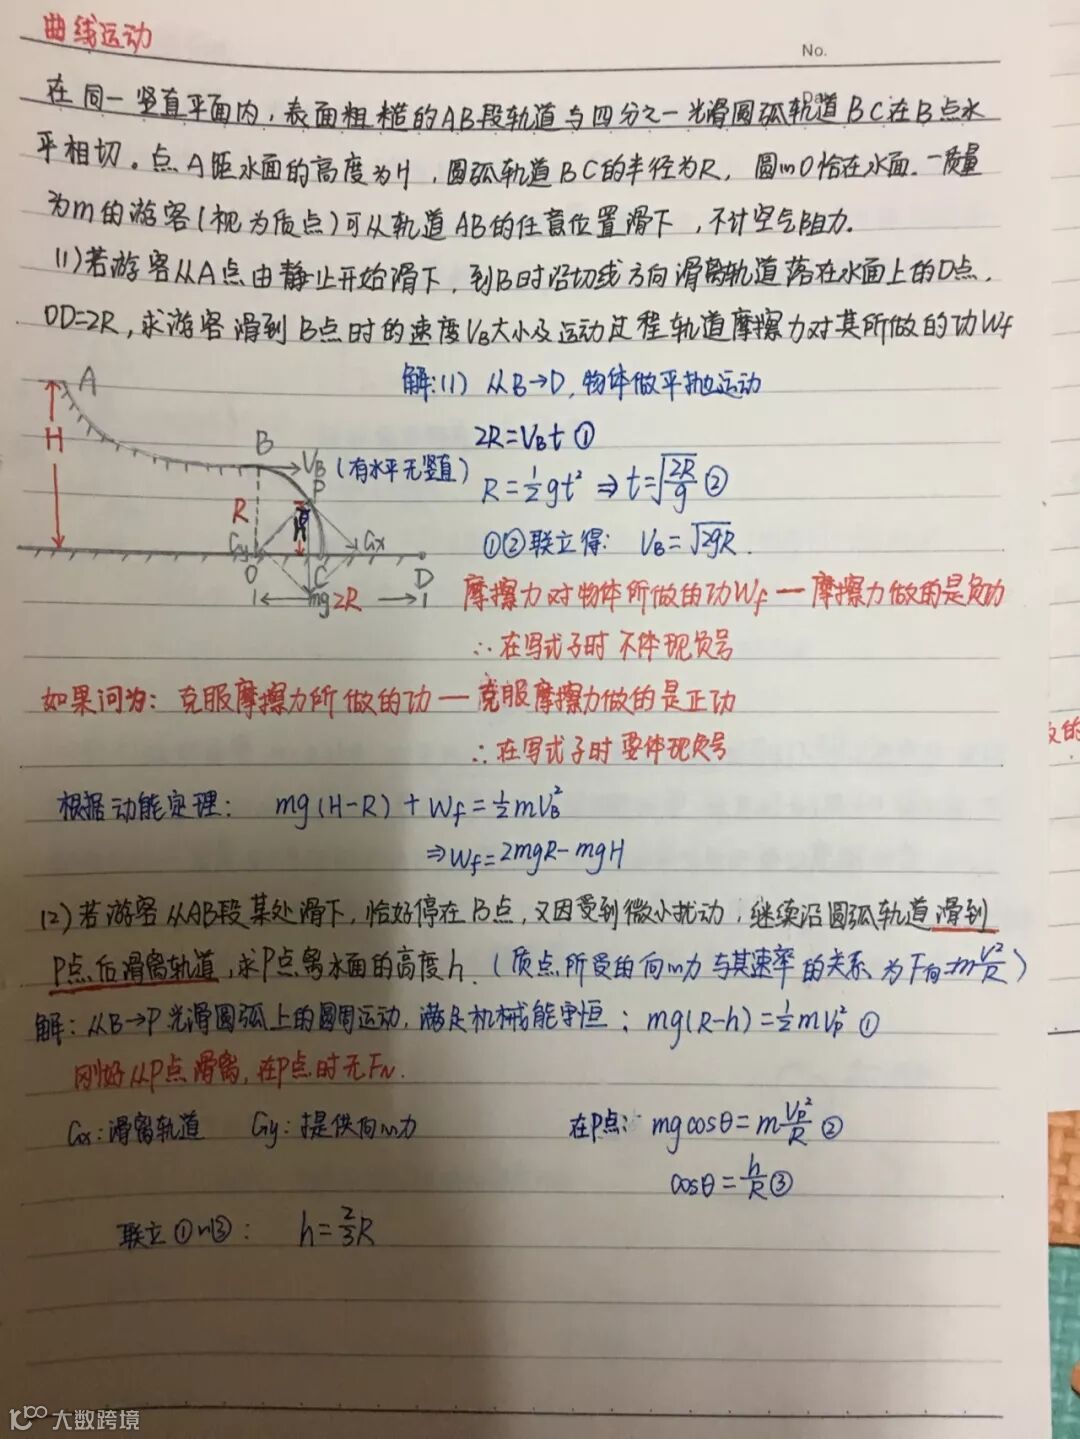 曲线运动
No.
在同一竖直平面内，表面粗糙的AB段轨道与四分之一光滑圆弧轨道BC在B点水
平相切。点A距水面的高度为H，圆弧轨道BC的半径为R，圆心O恰在水面.一质量
为m的游客(视为质点)可从轨道AB的任意位置滑下，不计空气阻力.
(1)若游客从A点由静止开始滑下，到B时沿切线方向滑离轨道落在水面上的D点，
OD=2R，求游客滑到B点时的速度VB大小及运动过程轨道摩擦力对其所做的功Wf
A
H
B
VB (有水平无竖直)
P
R
h
Gy
Gx
O
C
D
mg
2R
解:(1) 从B→D，物体做平抛运动
2R=VBt ①
R=½gt² ⇒ t=√(2R/g) ②
①②联立得: VB=√2gR.
摩擦力对物体所做的功Wf — 摩擦力做的是负功
∴在写式子时不体现负号
如果问为: 克服摩擦力所做的功 — 克服摩擦力做的是正功
∴在写式子时要体现负号
根据动能定理: mg(H-R)+Wf=½mVB²
⇒Wf=2mgR-mgH
(2)若游客从AB段某处滑下，恰好停在B点，又因受到微小扰动，继续沿圆弧轨道滑到
P点后滑离轨道，求P点离水面的高度h.(质点所受的向心力与其速率的关系为F向=mV²/R)
解: 从B→P光滑圆弧上的圆周运动，满足机械能守恒; mg(R-h)=½mVp² ①
刚好从P点滑离，在P点时无FN.
Gx:滑离轨道 Gy:提供向心力 在P点: mgcosθ=mVp²/R ②
cosθ=h/R ③
联立①~③: h=⅔R
大数跨境